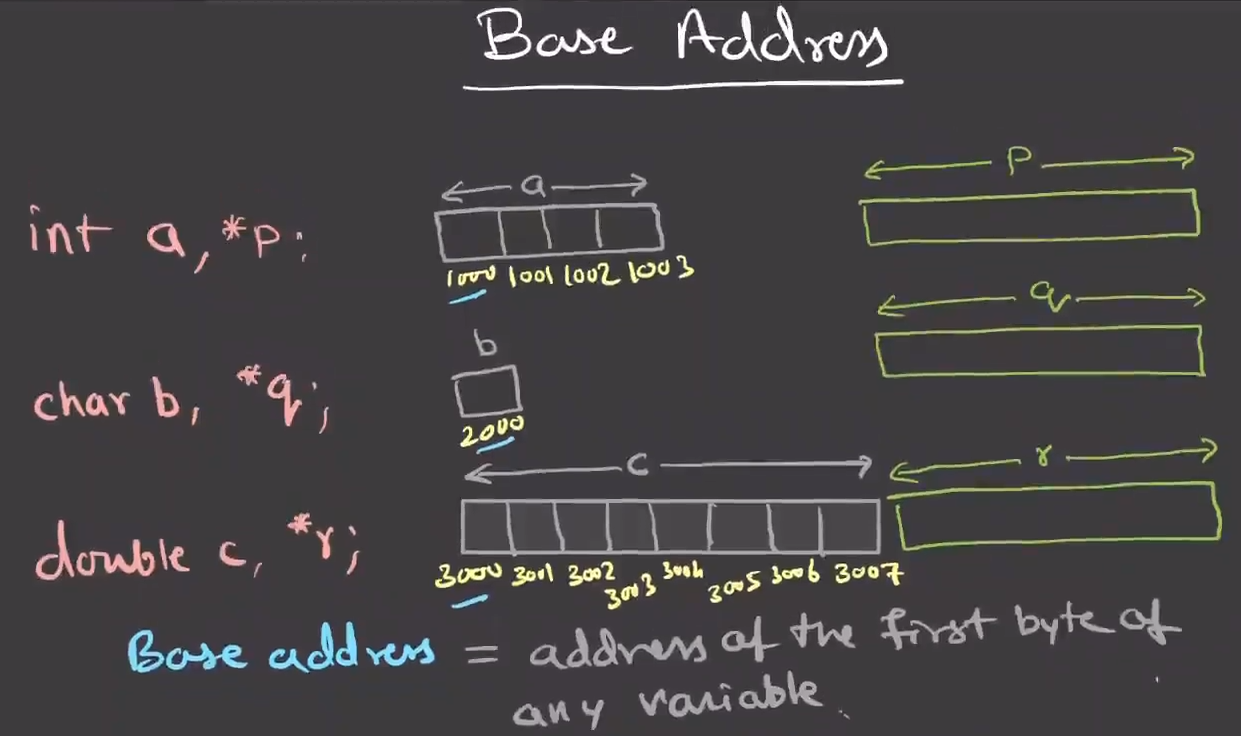 Base Address
int a, *p;
a
p
1000 1001 1002 1003
q
char b, *q;
b
2000
double c, *r;
c
r
3000 3001 3002 3003 3004 3005 3006 3007
Base address = address of the first byte of
any variable.